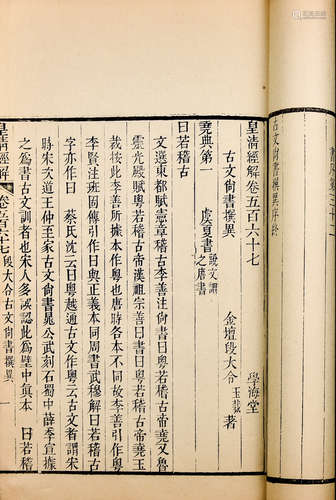 古文尚書撰異序終
皇清經解卷五百六十七 學海堂
古文尚書撰異 金壇段大令玉裁著
堯典第一 虞夏書 說文謂之唐書
曰若稽古
文選東都賦憲章稽古李善注尚書曰粵若稽古帝堯又魯
靈光殿賦粵若稽古帝漢祖宗善曰書曰粵若稽古帝堯玉
裁按此李善所據本作粵也唐時各本不同故李善引作粵
李賢注班固傳引作曰與正義本同周書武穆解曰若稽古
字亦作曰 蔡氏沈云曰粵越通古文作粵云古文者謂宋
時宋次道王仲至家古文尚書晁公武刻石蜀中薛季宣據
之為書古文訓者也宋人多誤認此為壁中眞本 曰若稽
皇清經解 卷五百六十七 段大令古文尚書撰異 一